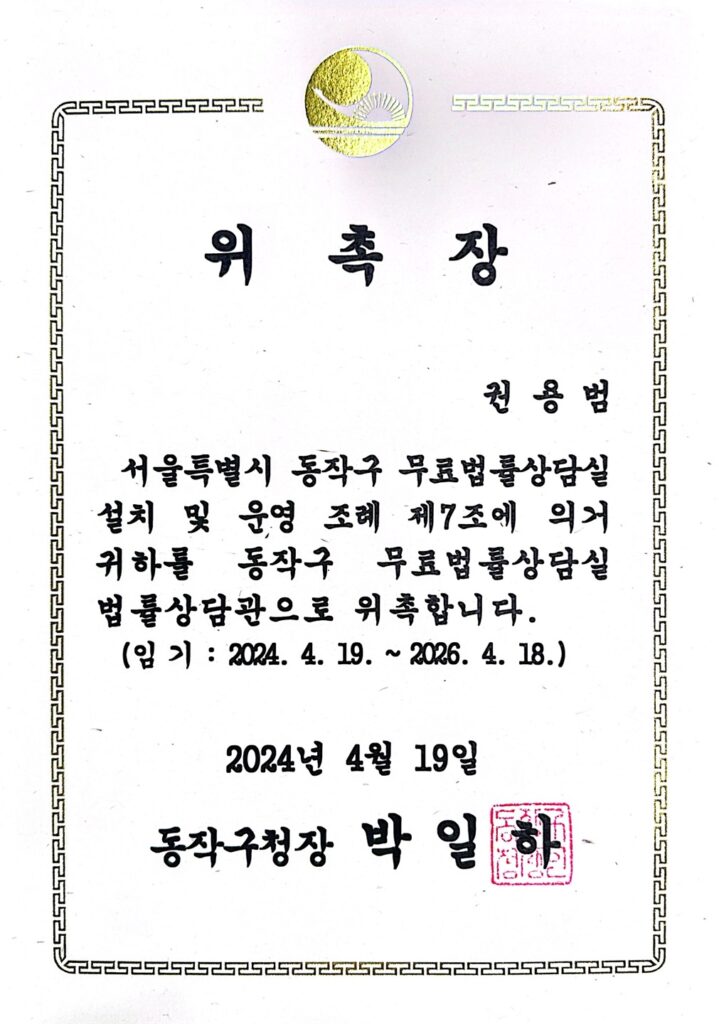 위 촉 장
권 용 범
서울특별시 동작구 무료법률상담실
설치 및 운영 조례 제7조에 의거
귀하를 동작구 무료법률상담실
법률상담관으로 위촉합니다.
(임 기 : 2024. 4. 19. ~ 2026. 4. 18.)
2024년 4월 19일
동작구청장 박 일 하